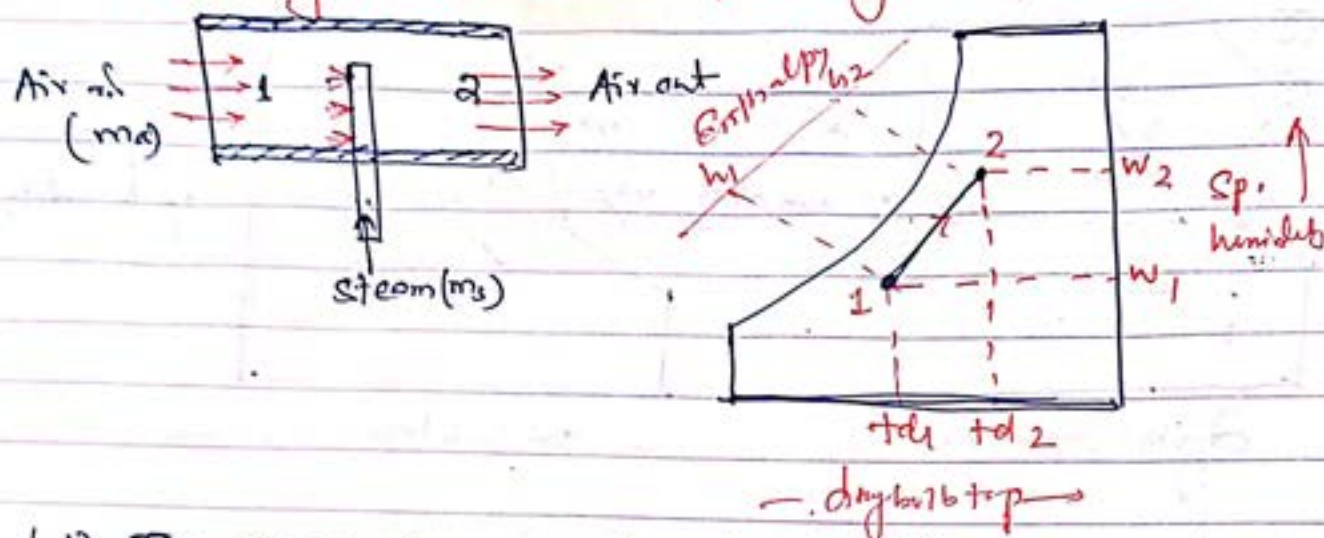 Air in
(ma)
1
2
Air out
Steam (ms)
Enthalpy
h2
h1
2
1
W2
W1
Sp.
humidity
td1 td2
dry bulb temp